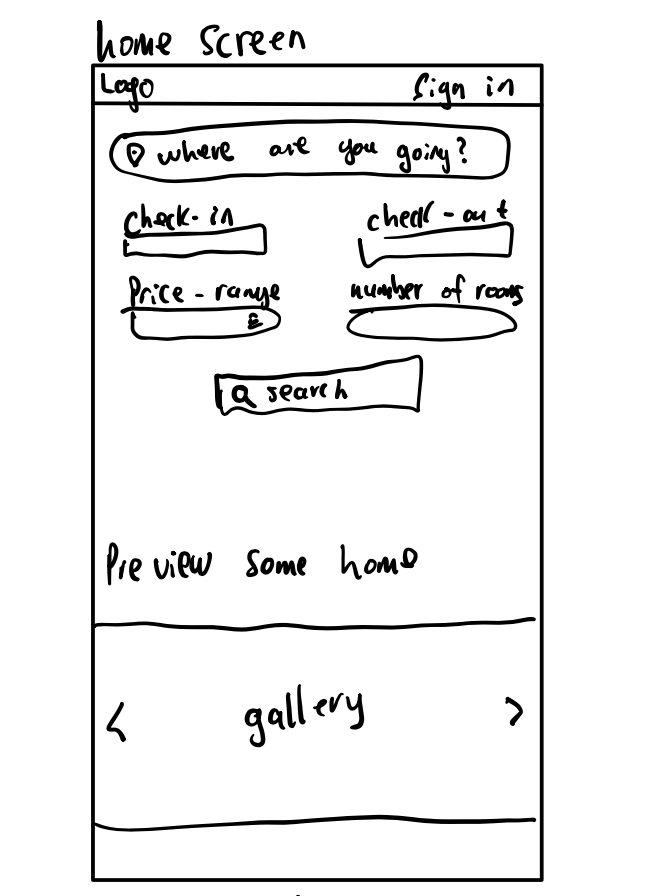 home screen
Logo Sign in
where are you going?
check-in check-out
Price-range number of rooms
search
Preview some home
< gallery >